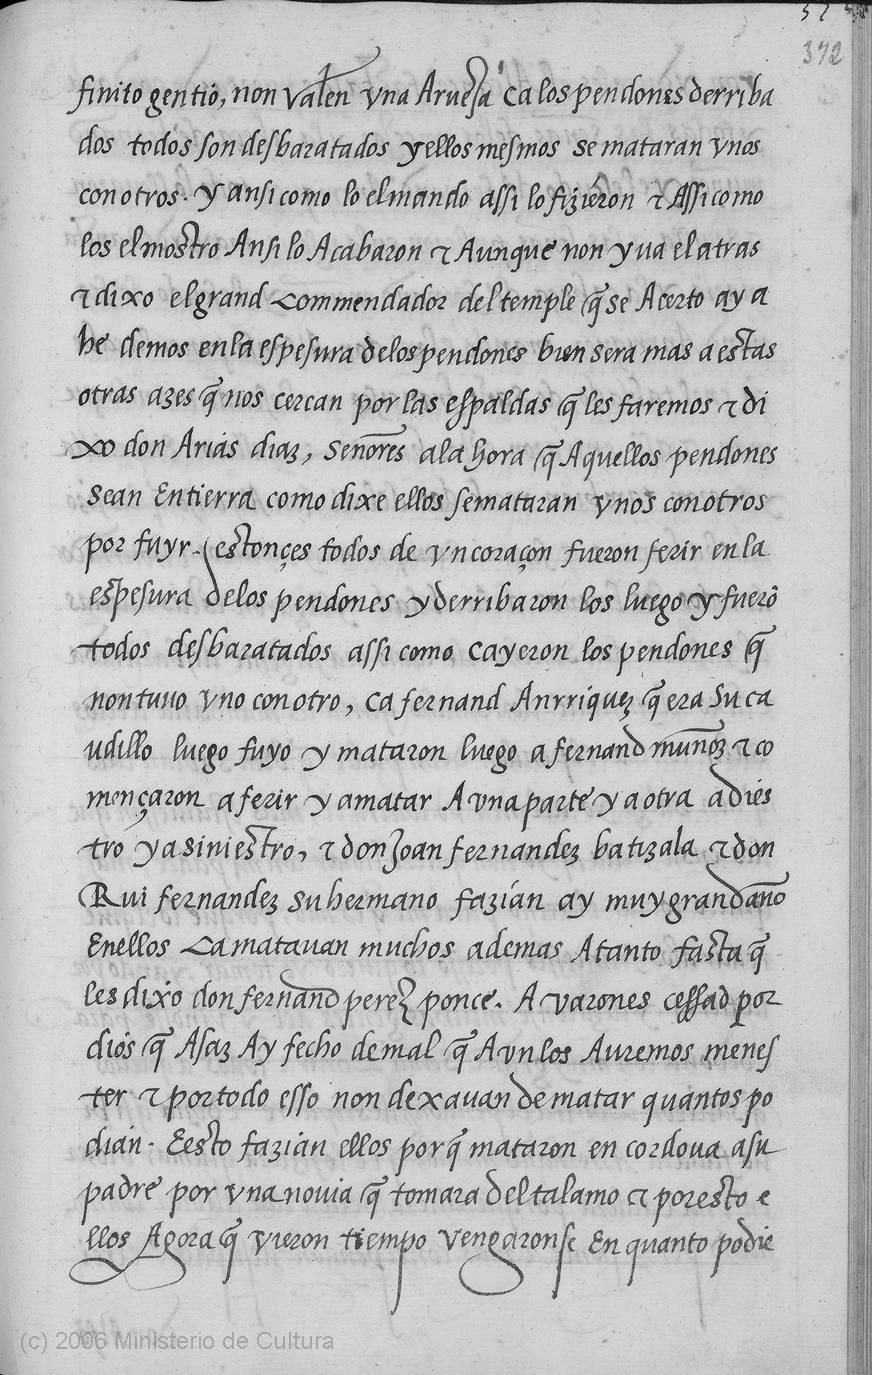 52
372
finito gentio, non valen vna Arueja ca los pendones derriba
dos todos son desbaratados y ellos mesmos se mataran vnos
con otros. y ansi como lo el mando assi lo fizieron τ Assi como
los el mostro Ansi lo Acabaron τ Aunque non yua el atras
τ dixo el grand commendador del temple q̃ se Acerto ay a
he demos en la espesura de los pendones bien sera mas a estas
otras azes q̃ nos cercan por las espaldas q̃ les faremos τ di
xo don Arias diaz, señores a la hora q̃ Aquellos pendones
sean En tierra como dixe ellos se mataran vnos con otros
por fuyr. estonçes todos de vn coraçon fueron ferir en la
espesura de los pendones y derribaron los luego y fuerõ
todos desbaratados assi como cayeron los pendones q̃
non tuuo vno con otro, ca fernand Anrriquez q̃ era su ca
udillo luego fuyo y mataron luego a fernand munoz τ co
mençaron a ferir y a matar A vna parte y a otra a dies
tro y a siniestro, τ don Joan fernandez batizala τ don
Rui fernandez su hermano fazian ay muy grand daño
En ellos Ca matauan muchos ademas A tanto fasta q̃
les dixo don fernand perez ponce. A varones cessad por
dios q̃ Asaz Ay fecho de mal q̃ Avn los Auremos menes
ter τ por todo esso non dexauan de matar quantos po
dian. E esto fazian ellos porq̃ mataron en cordoua a su
padre por vna nouia q̃ tomara del talamo τ por esto e
llos Agora q̃ vieron tiempo vengaronse En quanto podie
(c) 2006 Ministerio de Cultura